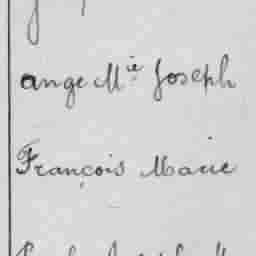 ange Mie Joseph
François Marie